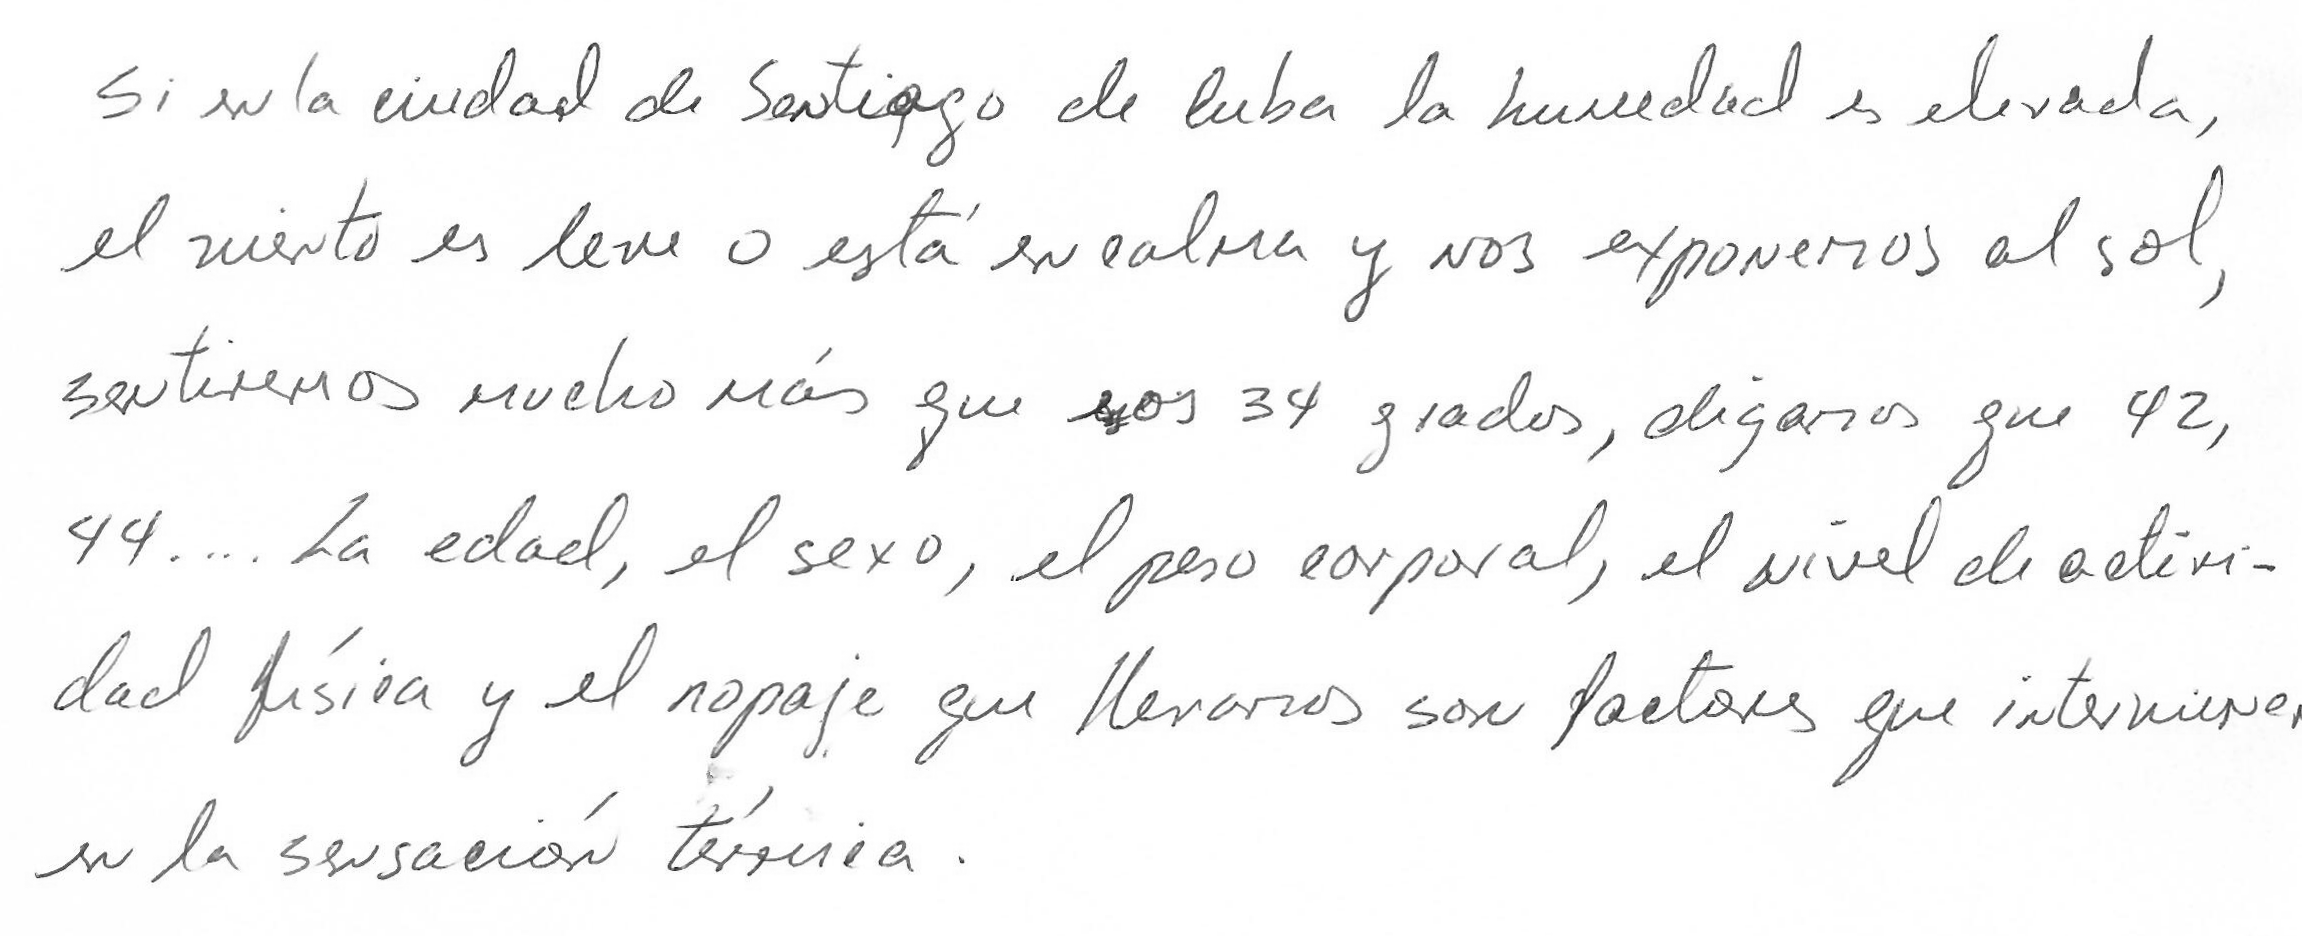 Si en la ciudad de Santiago de Cuba la humedad es elevada,
el viento es leve o está en calma y nos exponemos al sol,
sentiremos mucho más que esos 34 grados, digamos que 42,
44.... La edad, el sexo, el peso corporal, el nivel de activi-
dad física y el ropaje que llevamos son factores que intervienen
en la sensación térmica.